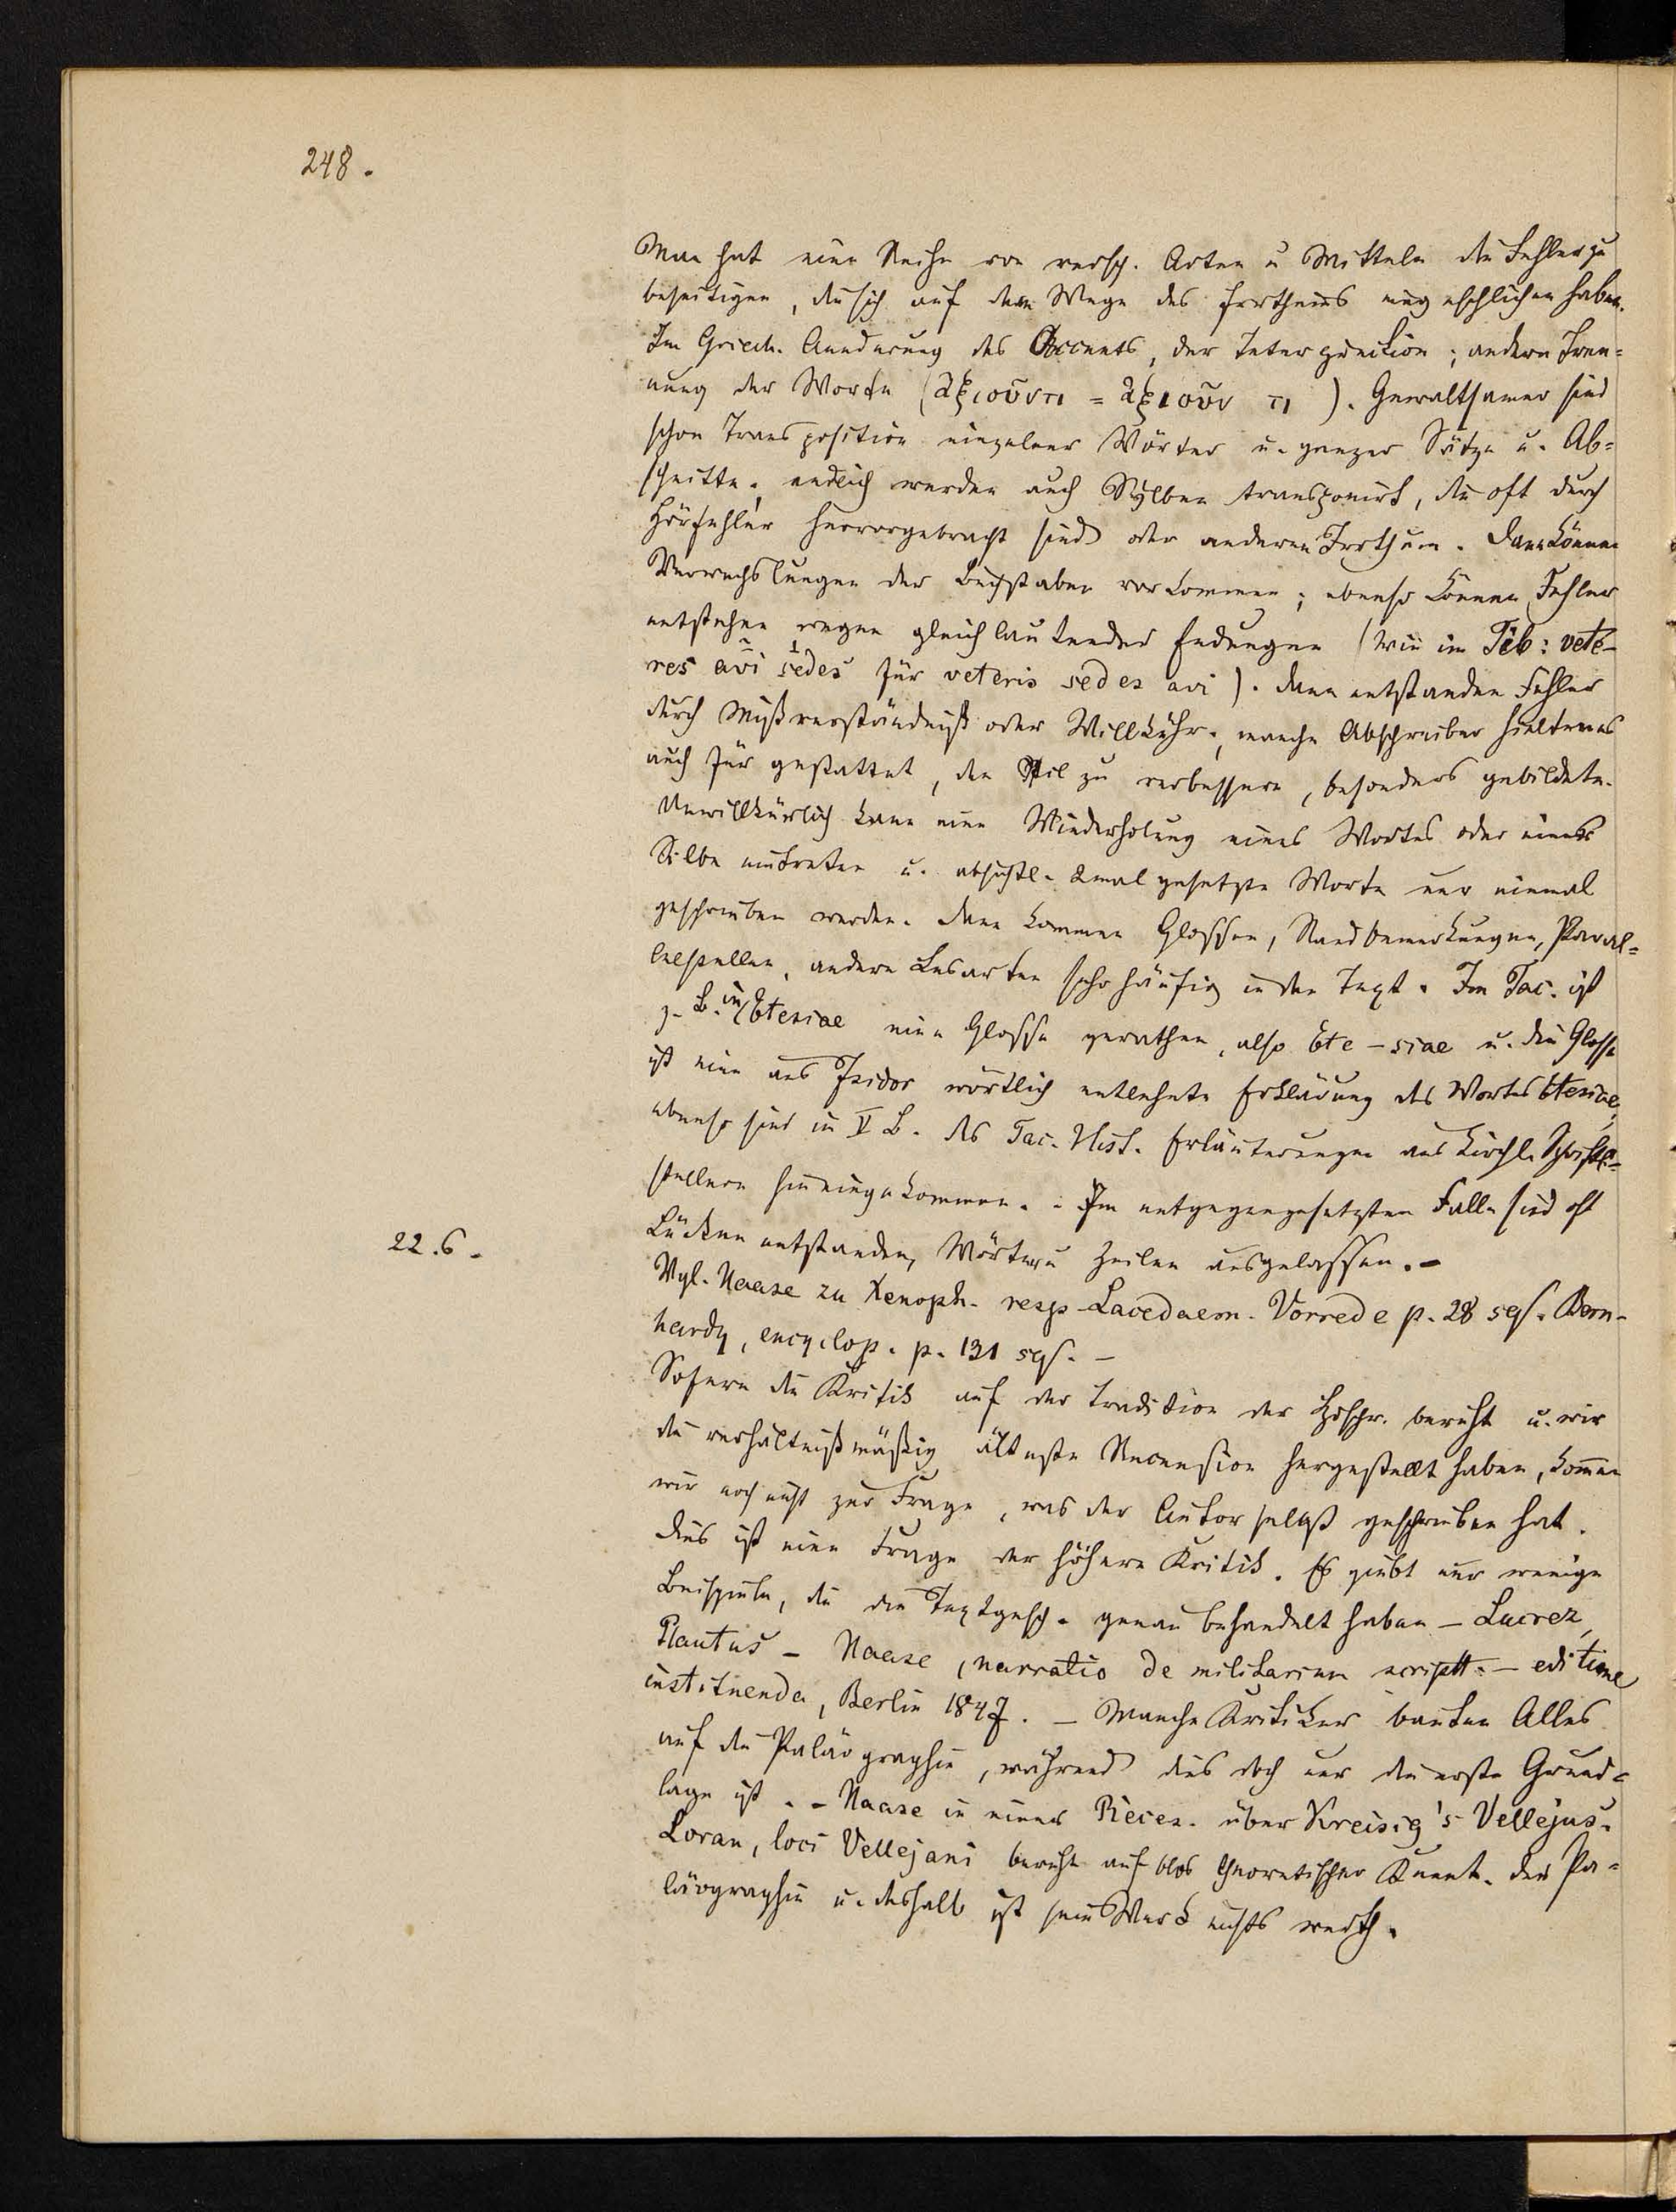 248.
Man hat eine Reihe von versch. Arten u Mitteln die Fehler zu
beseitigen, die sich auf dem Wege des Irrthums eingeschlichen haben.
Im Griech. Aenderung des Accents, der Interpunction; andere Tren=
nung der Worte (ἀξιοῦντι = ἀξιοῦν τι). Gewaltsamer sind
schon Transposition einzelner Wörter u. ganzer Sätze u. Ab=
schnitte; endlich werden auch Sylben transponirt, die oft durch
Hörfehler hervorgebracht sind oder anderen Irrthum. Dann können
Verwechslungen der Buchstaben vorkommen; ebenso können Fehler
entstehen wegen gleichlautender Endungen (wie im Tib: vete-
res avi sedes für veteris sedes avi). Dann entstanden Fehler
durch Mißverständniß oder Willkühr, manche Abschreiber hielten es
auch für gestattet, den Stil zu verbessern, besonders gebildete.
Unwillkürlich kann eine Wiederholung eines Wortes oder einer
Silbe eintreten u. absichtl. 2mal gesetzte Worte nur einmal
geschrieben werden. Dann kommen Glossen, Randbemerkungen, Paral=
lelstellen, andere Lesarten sehr häufig in den Text. Im Tac. ist
z. B. in Etesiae eine Glosse gerathen, also Ete-siae u. die Glosse
ist eine aus Isidor wörtlich entlehnte Erklärung des Wortes Etesiae,
ebenso sind in V B. des Tac. Hist. Erläuterungen aus kirchl. Schrift-
stellern hineingekommen. - Im entgegengesetzten Falle sind oft
Lücken entstanden, Wörter u Zeilen ausgelassen. -
22.6.
Vgl. Haase zu Xenoph. resp Lacedaem. Vorrede p. 28 sqs. Bern-
hardy, encyclop. p. 131 sqs. -
Sofern die Kritik auf der Tradition der Hdschr. beruht u. wir
die verhältnißmäßig älteste Recension hergestellt haben, kommen
wir noch nicht zur Frage, was der Autor selbst geschrieben hat.
Dies ist eine Frage der höhern Kritik. Es giebt nur wenige
Beispiele, die die Textgesch. genau behandelt haben - Lucrez,
Plautus - Haase, narratio de militarium scriptt. - editione
instituenda, Berlin 1847. - Manche Kritiker bauten Alles
auf die Paläographie, während dies doch nur die erste Grund=
lage ist. - Haase in einer Recen. über Kreisig's Vellejus.
Loran, loci Vellejani beruht auf blos theoretischer Kennt. der Pa=
läographie u. deshalb ist sein Werk nichts werth.